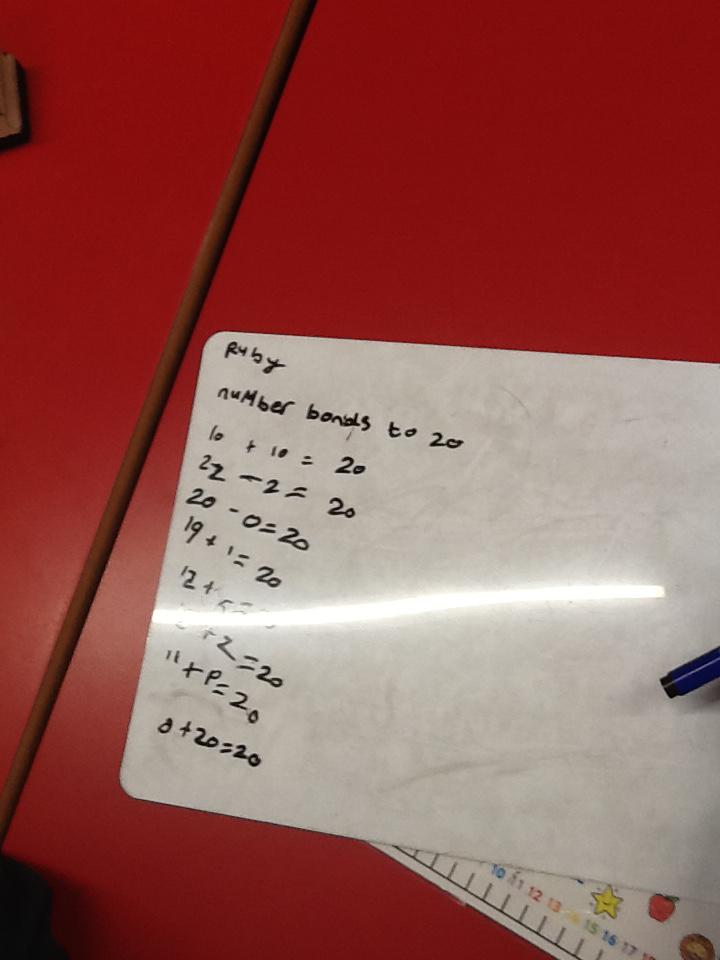 Ruby
number bonds to 20
10 + 10 = 20
22 - 2 = 20
20 - 0 = 20
19 + 1 = 20
12 +
+ 2 = 20
11 + P = 20
0 + 20 = 20
10 11 12 13 14 15 16 17 18